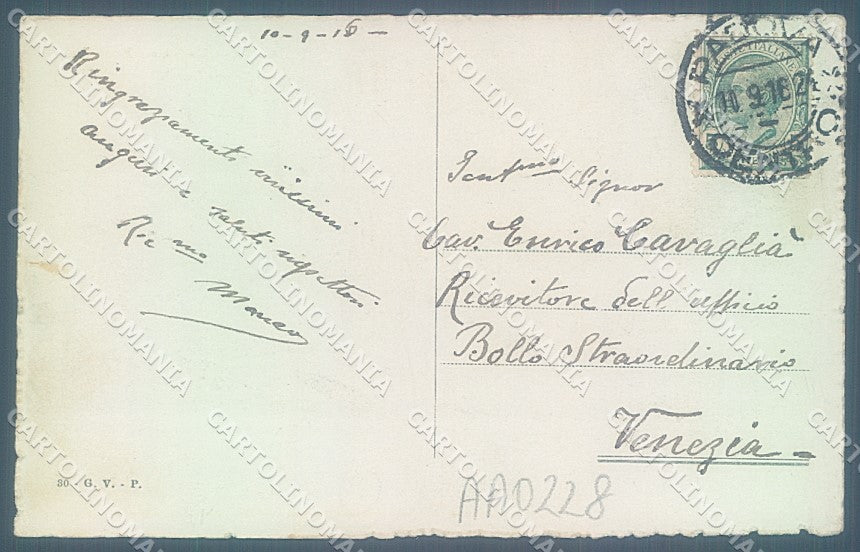 10-9-16 -
Ringraziamenti vivissimi
auguri e saluti rispettosi
Ric.mo
Gent.mo Signor
Cav. Enrico Cavaglià
Ricevitore dell'ufficio
Bollo Straordinario
Venezia -
PADOVA
10.9.16 21
CENTRO
30 - G. V. - P.
AA0228
CARTOLINOMANIA